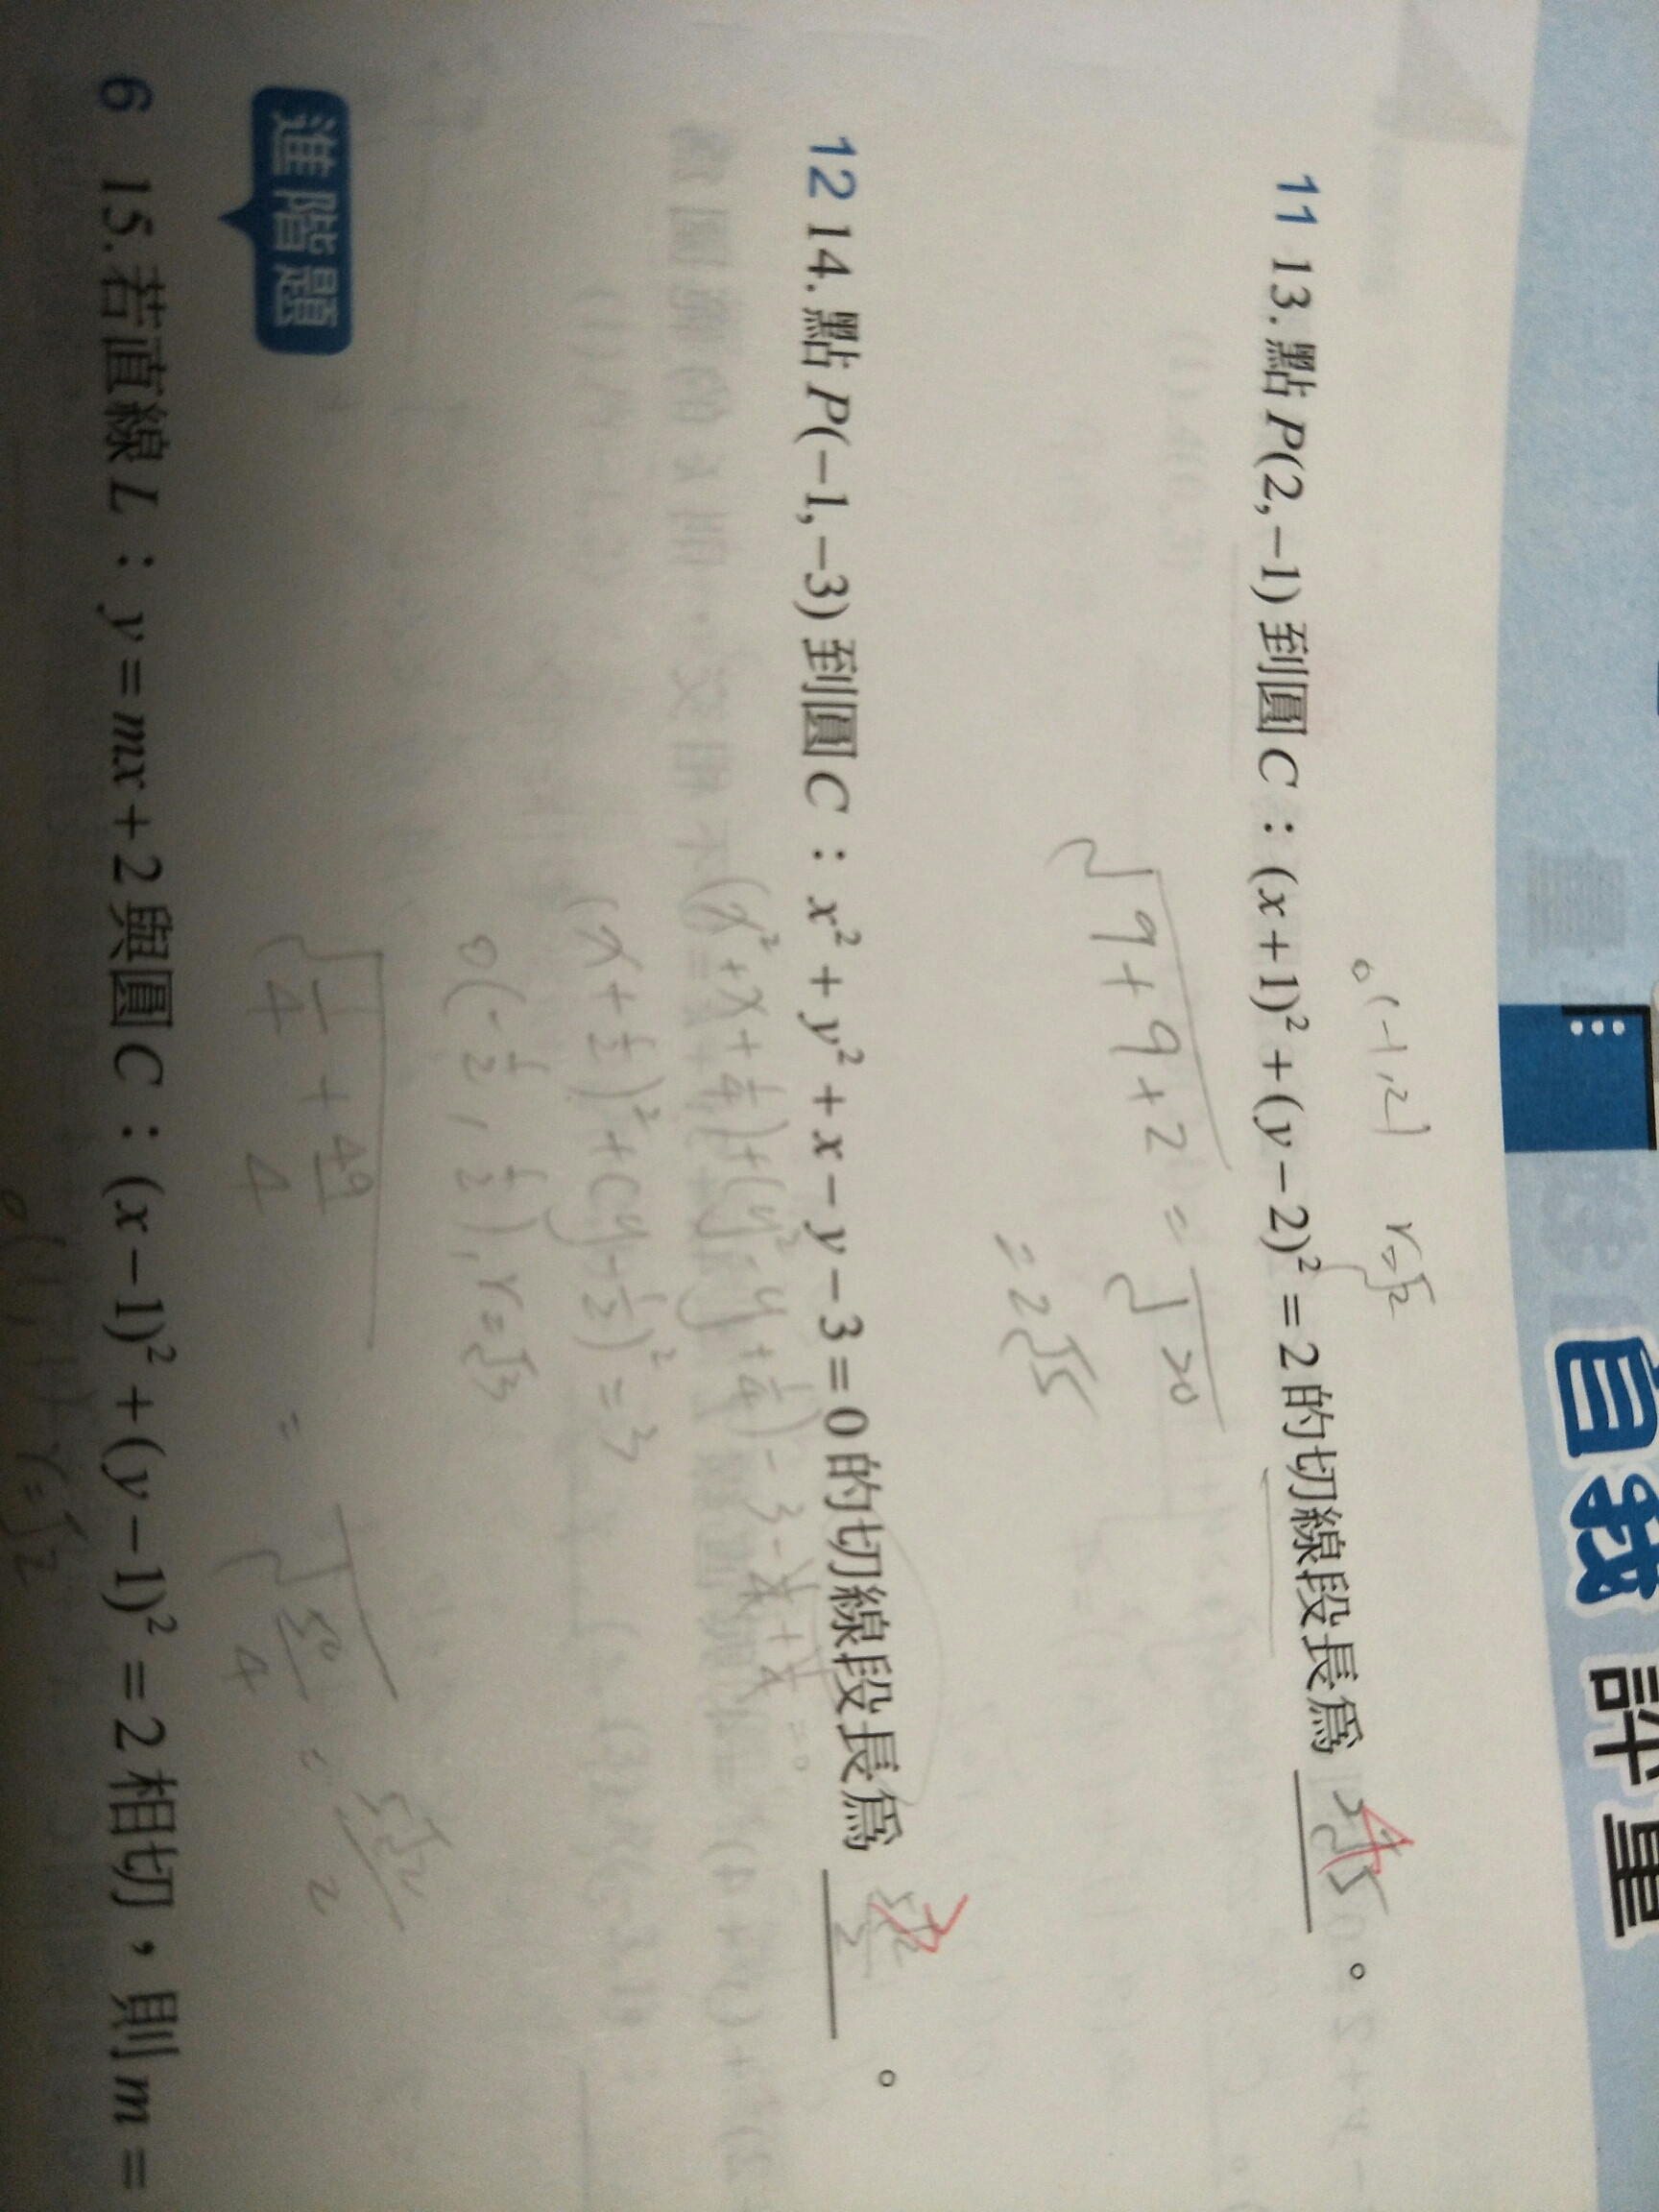 自我評量
o(-1,2) r=√2
11 13. 點 P(2,−1) 到圓 C：(x+1)²+(y−2)²=2 的切線段長為 2√5 。
√9+9+2 = √20
= 2√5
12 14. 點 P(−1,−3) 到圓 C：x²+y²+x−y−3=0 的切線段長為 5√2/2 。
(x²+x+1/4)+(y²-y+1/4)-3-1/4+1/4=0
(x+1/2)²+(y-1/2)²=3
o(-1/2, 1/2), r=√3
√1/4+49/4 = √50/4 = 5√2/2
進階題
6 15. 若直線 L：y=mx+2 與圓 C：(x−1)²+(y−1)²=2 相切，則 m=
r=√2